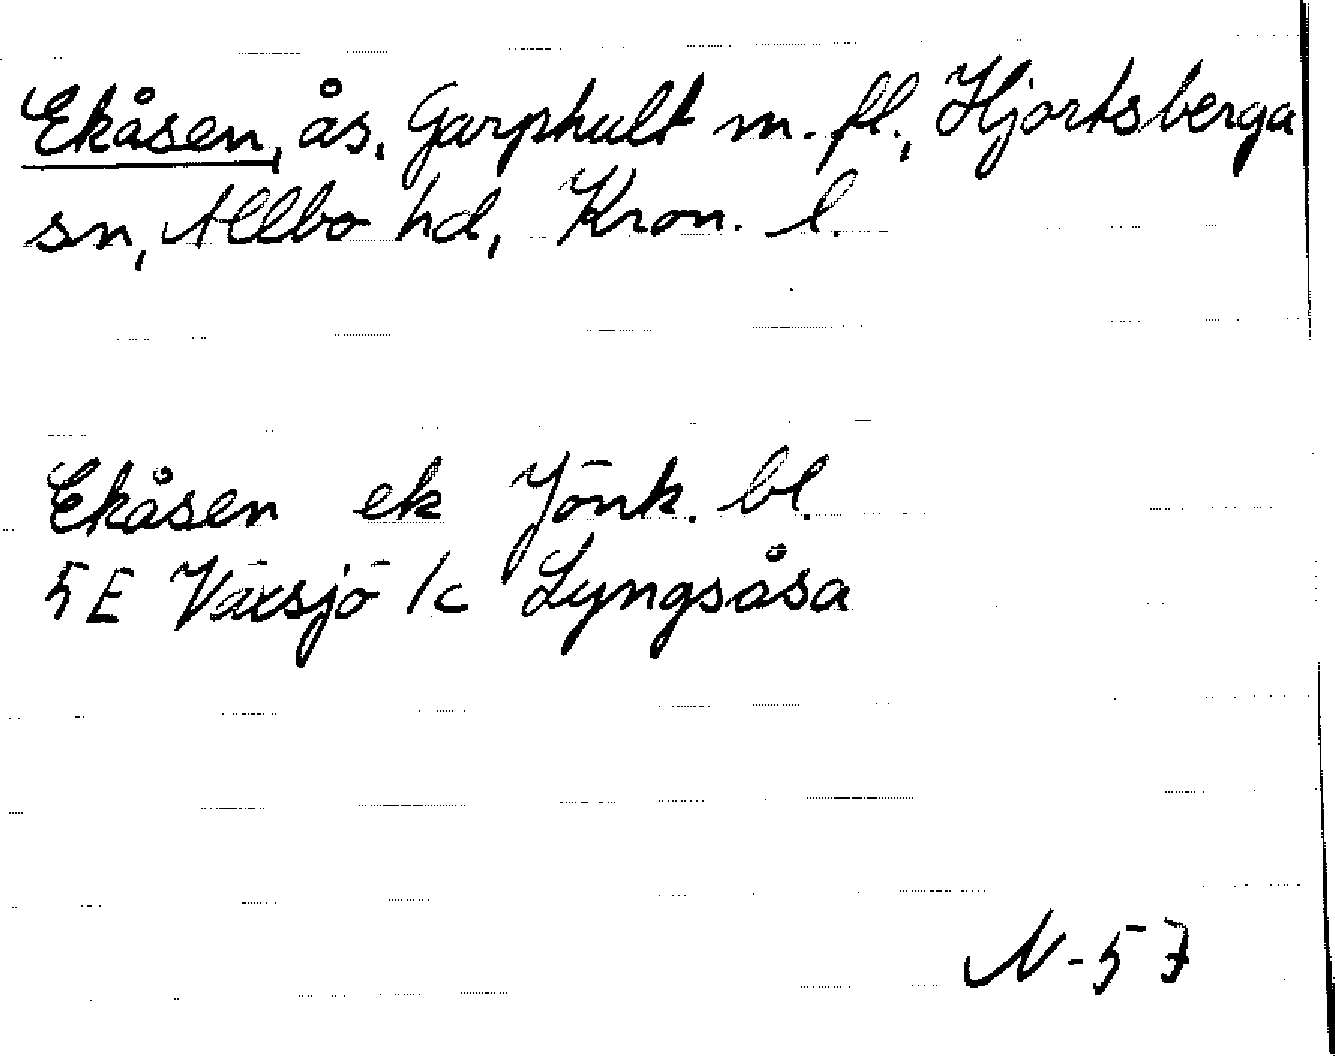 Ekåsen, ås, Garphult m. fl., Hjortsberga
sn, Allbo hd, Kron. l.
Ekåsen ek Jönk. bl.
5E Växsjö /c Lyngsåsa
N-57